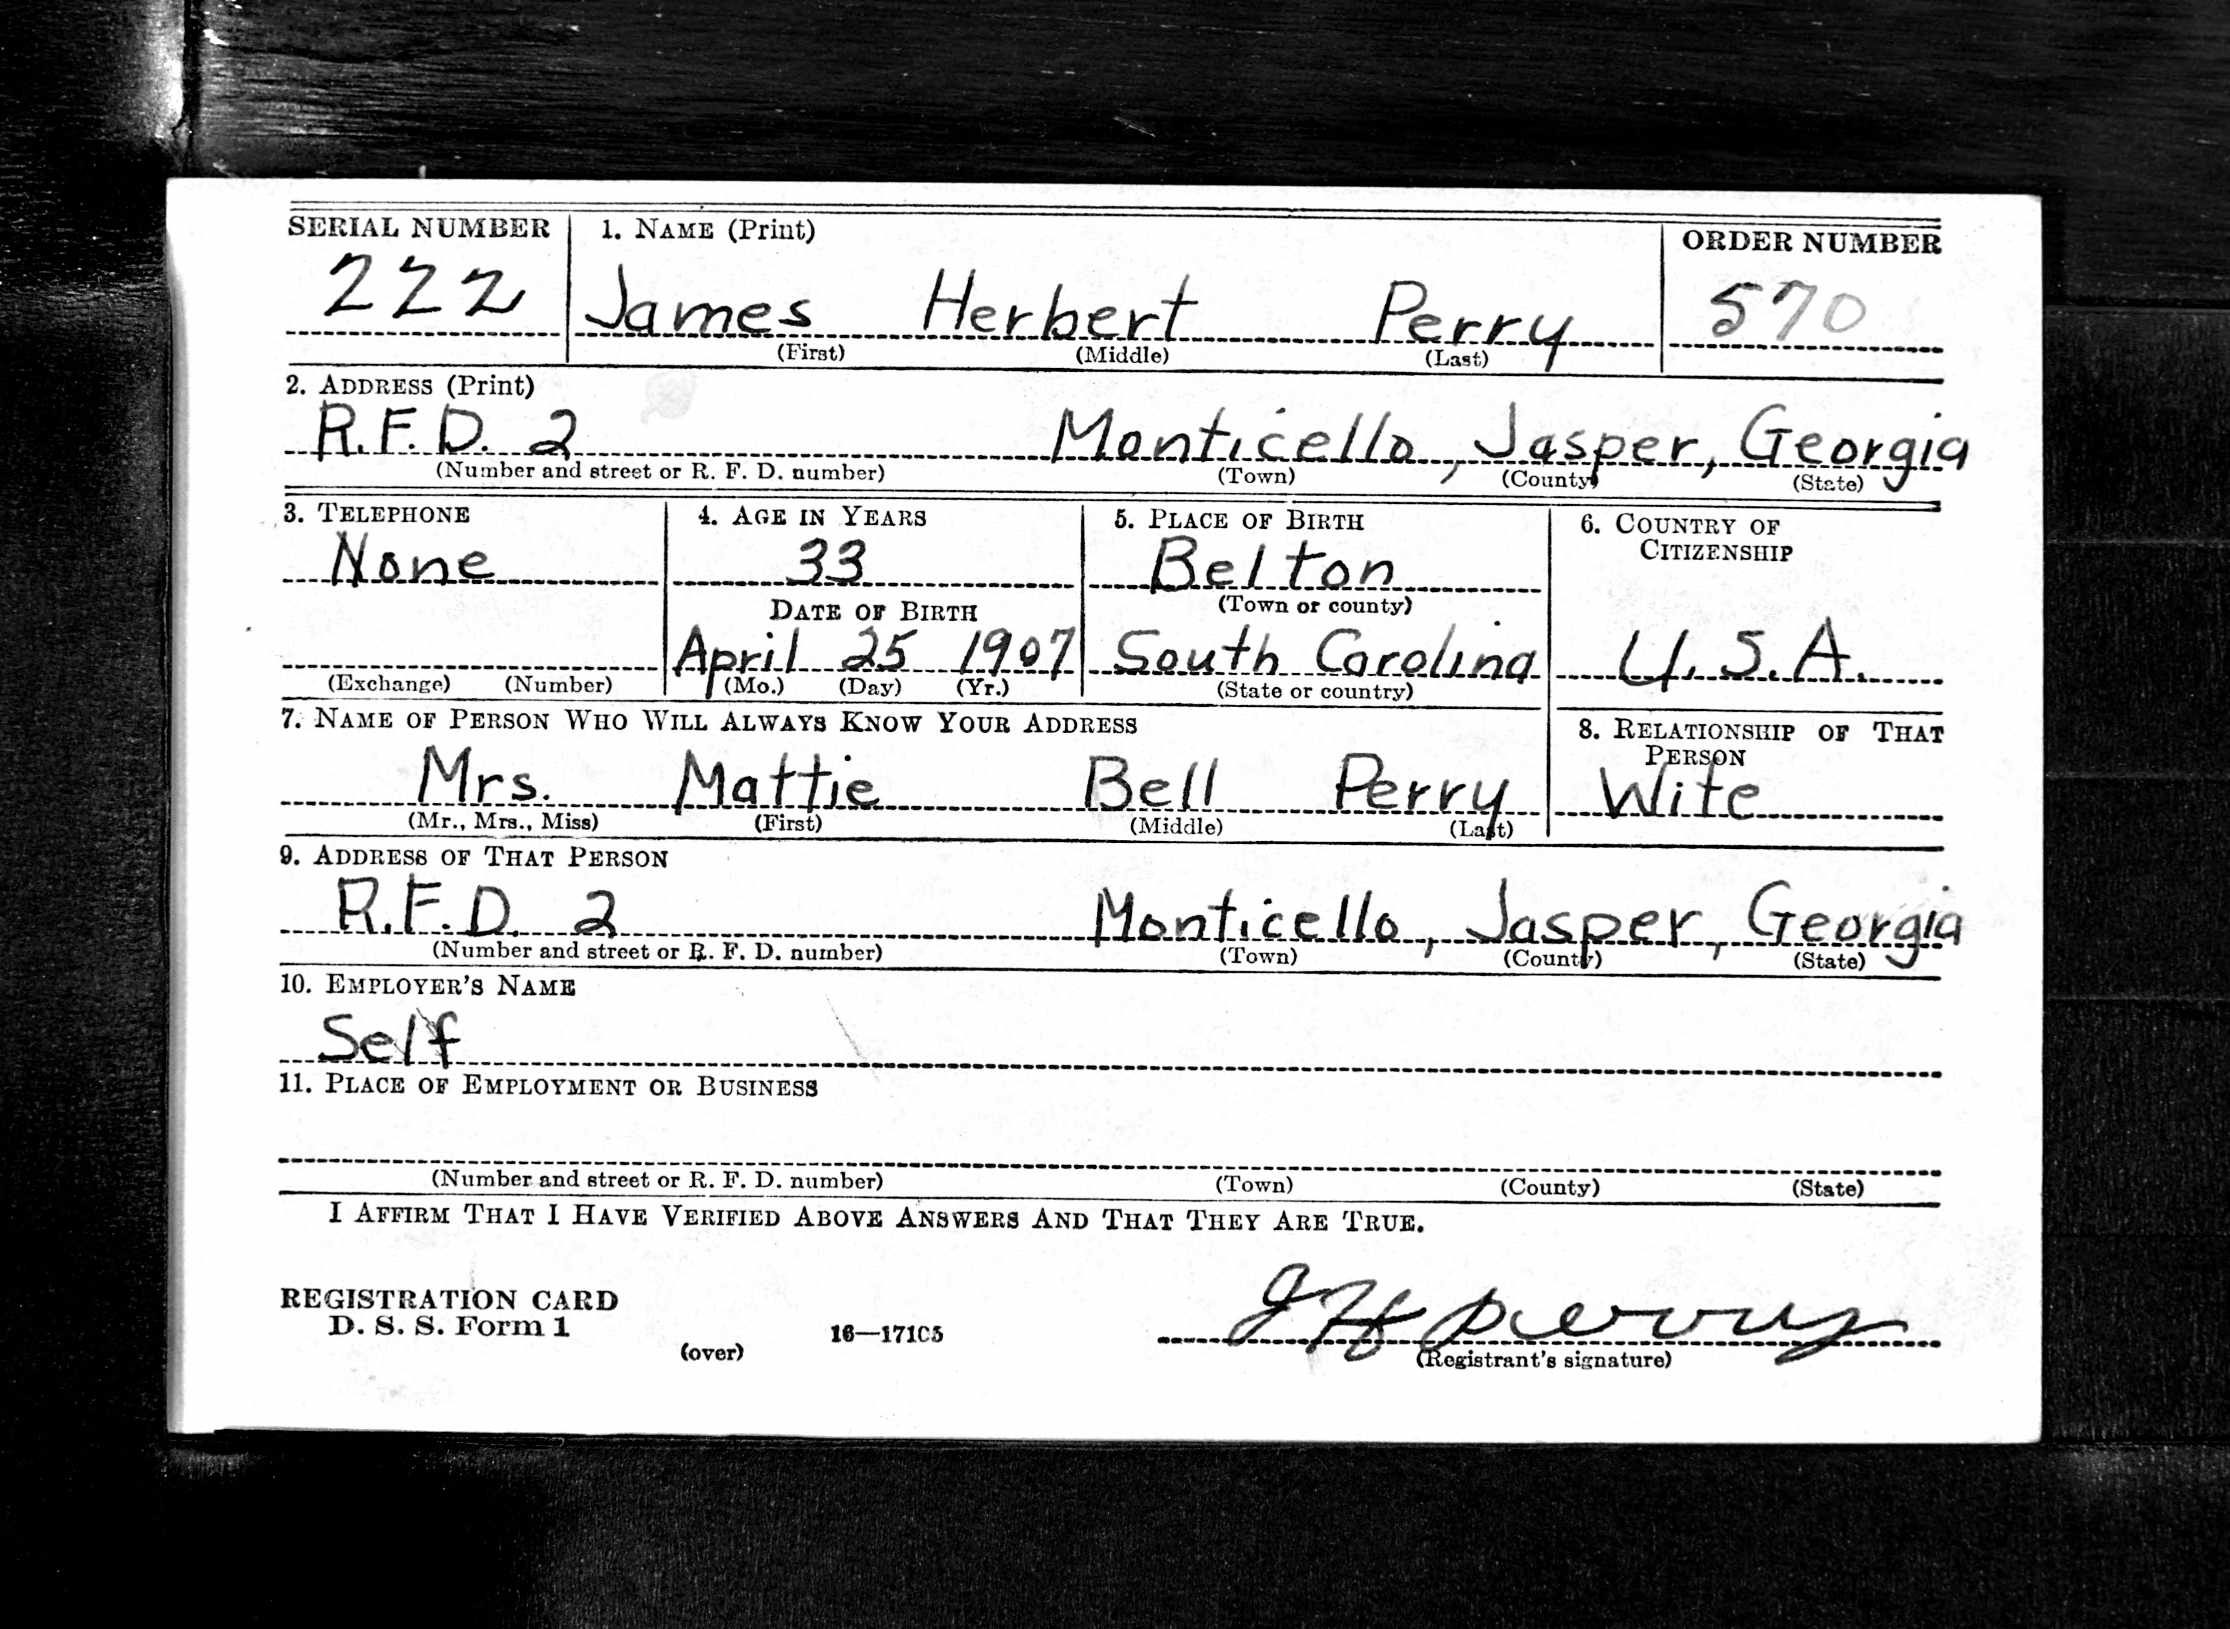 SERIAL NUMBER 1. NAME (Print) ORDER NUMBER
222 James Herbert Perry 570
(First) (Middle) (Last)
2. ADDRESS (Print)
R.F.D. 2 Monticello, Jasper, Georgia
(Number and street or R. F. D. number) (Town) (County) (State)
3. TELEPHONE 4. AGE IN YEARS 5. PLACE OF BIRTH 6. COUNTRY OF
CITIZENSHIP
None 33 Belton
DATE OF BIRTH (Town or county)
April 25 1907 South Carolina U.S.A.
(Exchange) (Number) (Mo.) (Day) (Yr.) (State or country)
7. NAME OF PERSON WHO WILL ALWAYS KNOW YOUR ADDRESS 8. RELATIONSHIP OF THAT
PERSON
Mrs. Mattie Bell Perry Wife
(Mr., Mrs., Miss) (First) (Middle) (Last)
9. ADDRESS OF THAT PERSON
R.F.D. 2 Monticello, Jasper, Georgia
(Number and street or R. F. D. number) (Town) (County) (State)
10. EMPLOYER'S NAME
Self
11. PLACE OF EMPLOYMENT OR BUSINESS
(Number and street or R. F. D. number) (Town) (County) (State)
I AFFIRM THAT I HAVE VERIFIED ABOVE ANSWERS AND THAT THEY ARE TRUE.
REGISTRATION CARD
D. S. S. Form 1
(over) 16—17105
J H Perry
(Registrant's signature)